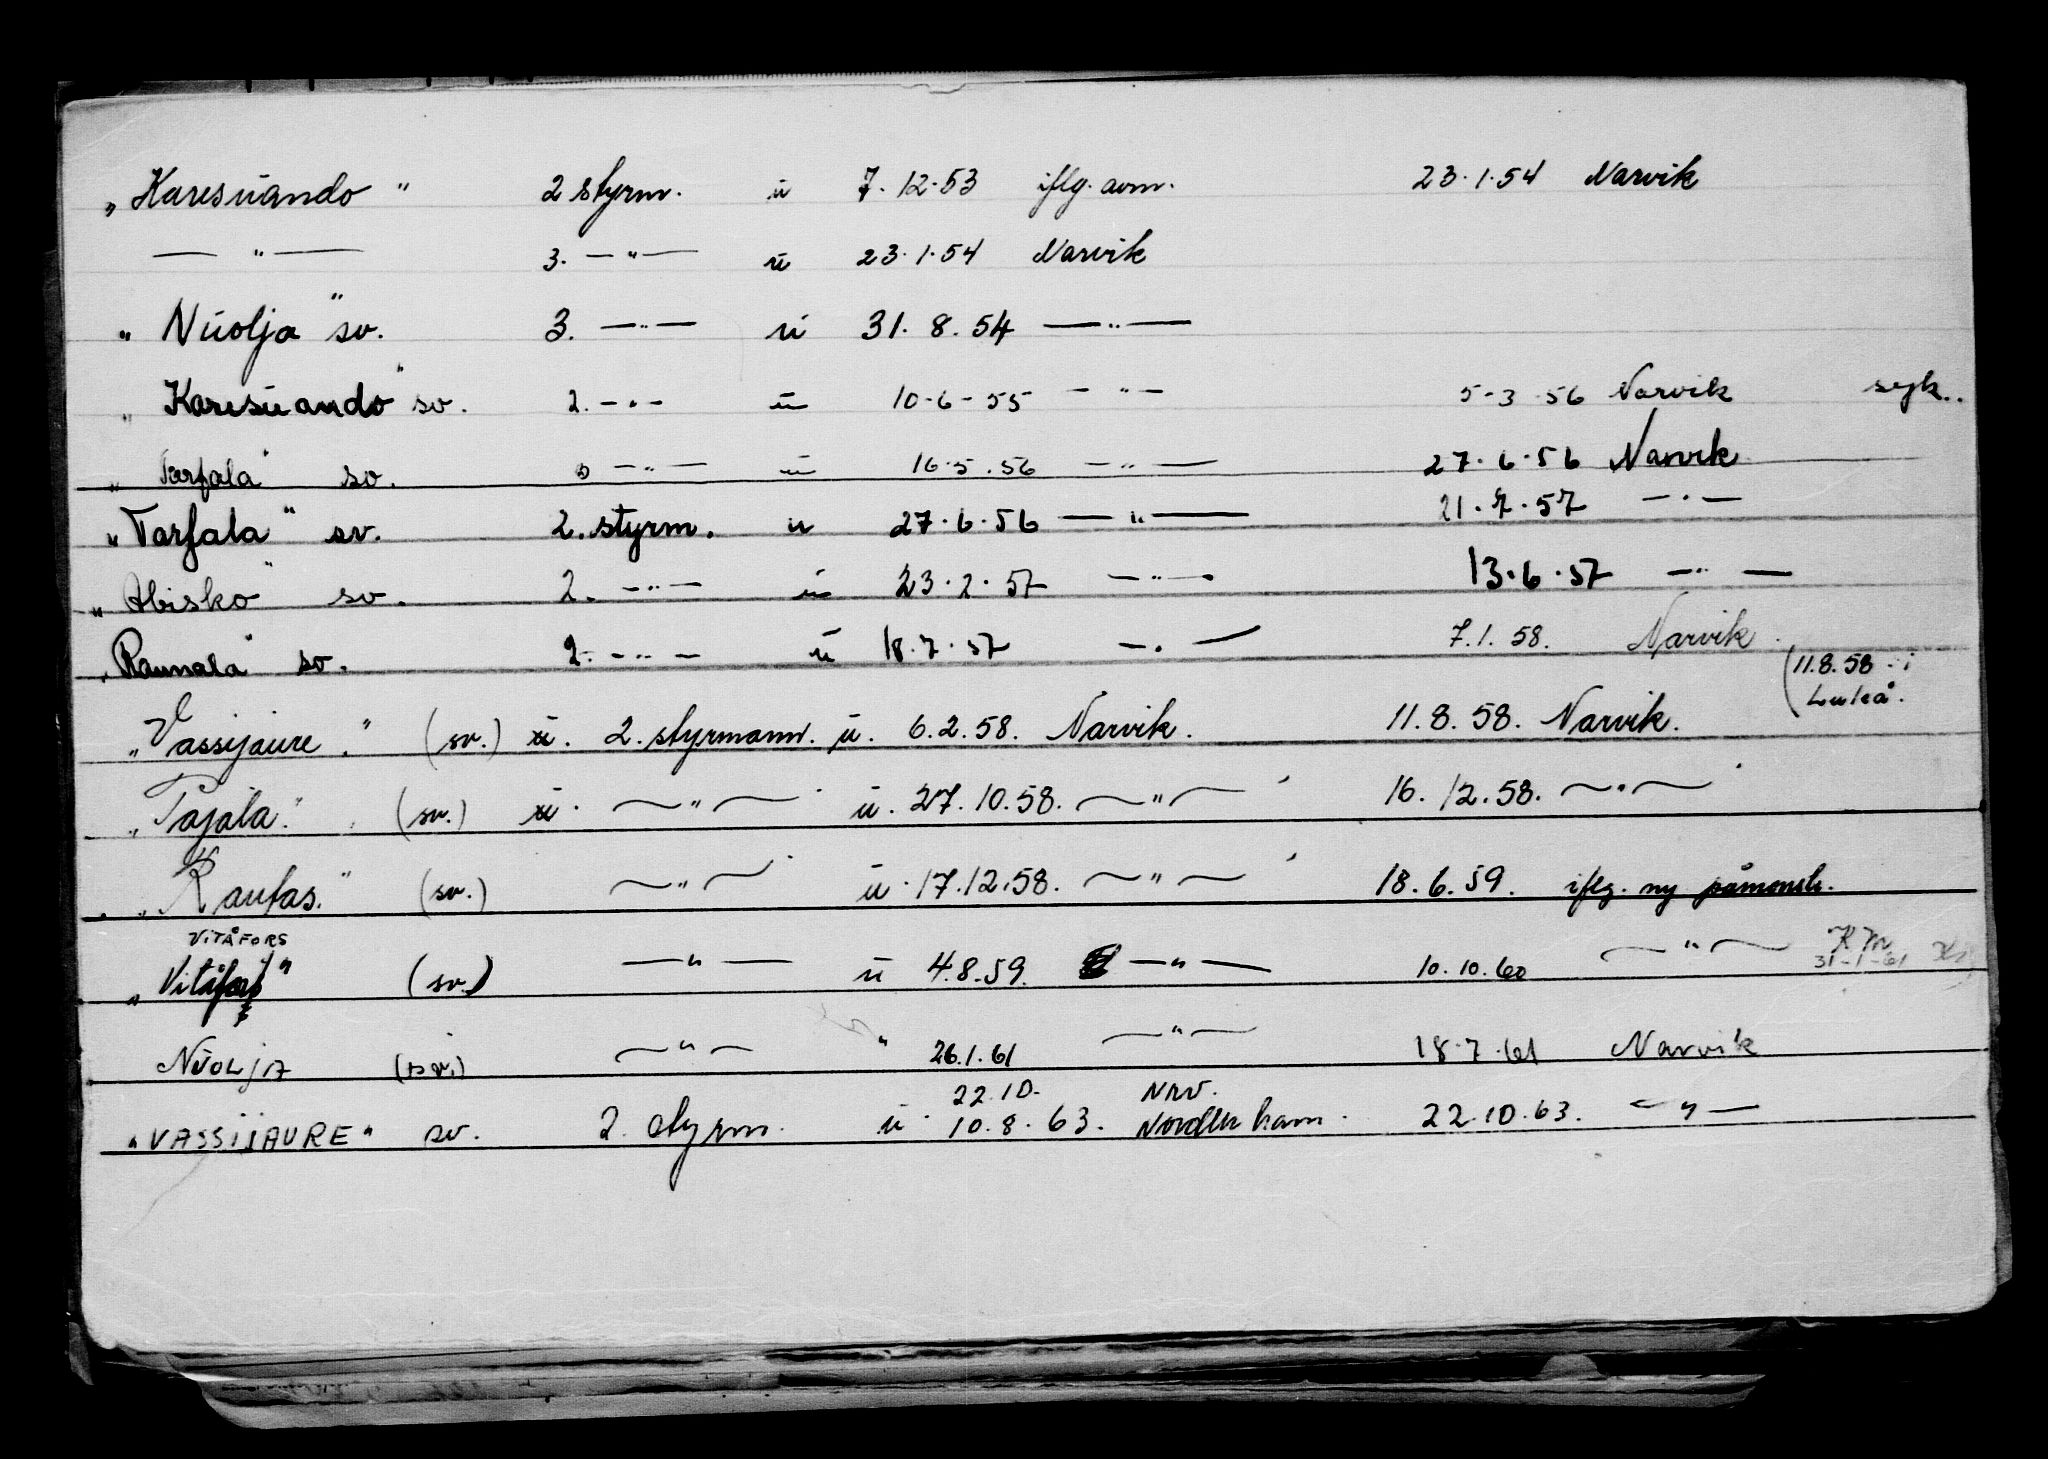 „Karesuando" 2 styrm. u 7.12.53 iflg. anm. 23.1.54 Narvik
— " — 3. — " — u 23.1.54 Narvik
„Nuolja" sv. 3. — " — u 31.8.54 — " —
„Karesuando" sv. 2. — " — u 10-6-55 — " — 5-3-56 Narvik syk..
„Tarfala" sv. — " — u 16.5.56 — " — 27.6.56 Narvik
„Tarfala" sv. 2. styrm. u 27.6.56 — " — 21.2.57 — " —
„Abisko" sv. 2. — " — u 23.2.57 — " — 13.6.57 — " —
„Raunala" sv. 2. — " — u 18.7.57 — " — 7.1.58. Narvik.
(11.8.58 i
Luleå.
„Vassijaure." (sv.) u. 2. styrmann. u. 6.2.58. Narvik. 11.8.58. Narvik.
„Pajala." (sv.) u. — " — u. 27.10.58. — " — 16.12.58. — " —
„Rautas." (sv.) — " — u. 17.12.58. — " — 18.6.59. iflg. ny påmønstr.
VITÅFORS
„Vitåfors" (sv.) — " — u 4.8.59. — " — 10.10.60 — " — KM
31-1-61
Nuolja (sv.) — " — " 26.1.61 — " — 18.7.61 Narvik
22.10. NRV.
„VASSIJAURE" sv. 2. styrm. u 10.8.63. Nordenham. 22.10.63. — " —